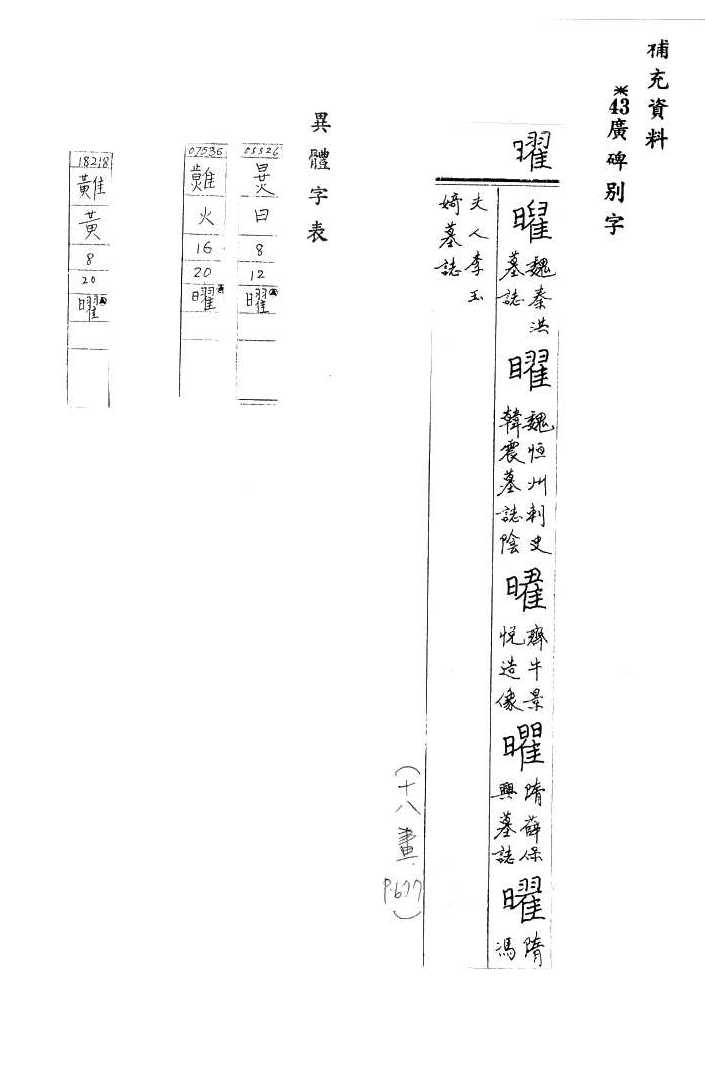 補充資料
※43廣碑別字
曜
曜 魏秦洪墓誌
曜 魏恒州刺史韓震墓誌陰
曜 齊牛景悅造像
曜 隋薛保興墓誌
曜 隋馮
夫人李玉婍墓誌
(十八畫 P.677)
異體字表
05526
炅
日
8
12
曜
07536
火
16
20
曜
18218
黃
8
20
曜